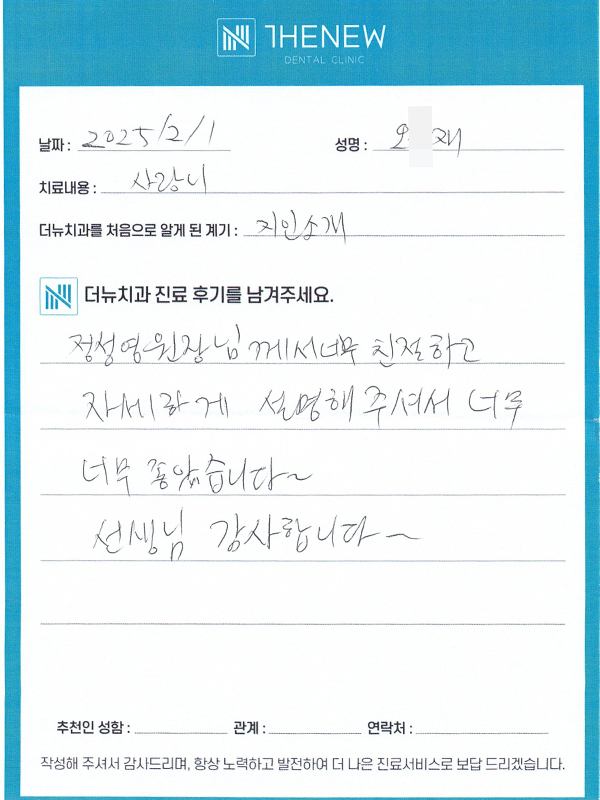 THENEW
DENTAL CLINIC
날짜 : 2025/2/1 성명 : 오 재
치료내용 : 사랑니
더뉴치과를 처음으로 알게 된 계기 : 지인소개
더뉴치과 진료 후기를 남겨주세요.
정성영원장님께서너무 친절하고
자세하게 설명해주셔서 너무
너무 좋았습니다~
선생님 감사합니다~
추천인 성함 : 관계 : 연락처 :
작성해 주셔서 감사드리며, 항상 노력하고 발전하여 더 나은 진료서비스로 보답 드리겠습니다.